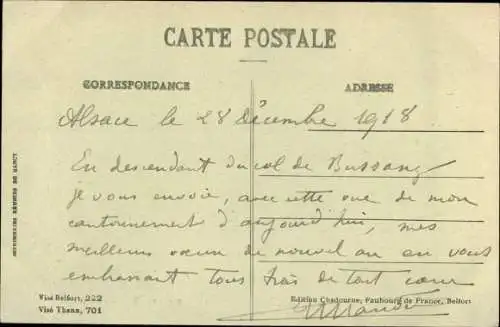 CARTE POSTALE
CORRESPONDANCE
ADRESSE
Alsace le 28 décembre 1918
En descendant du col de Bussang
je vous envoie, avec cette vue de mon
cantonnement d'aujourd'hui, mes
meilleurs vœux de nouvel an en vous
embrassant tous très de tout cœur
Visé Belfort, 222
Visé Thann, 701
Edition Chadourne, Faubourg de France, Belfort